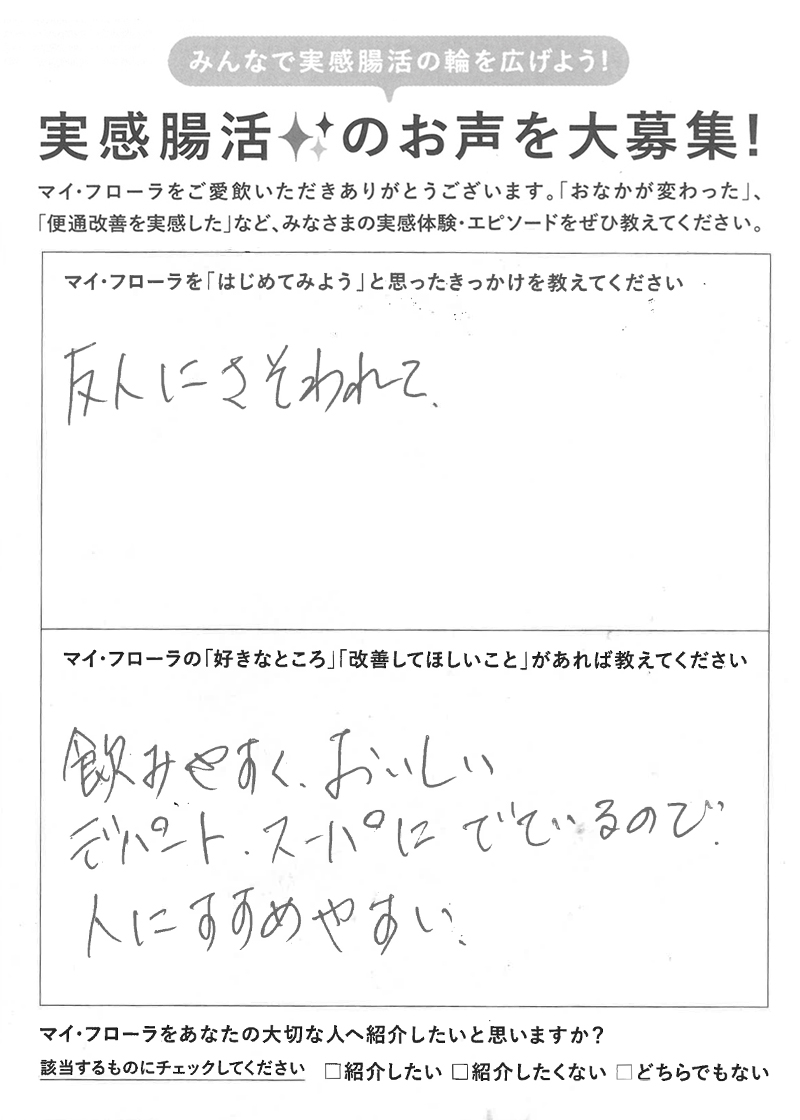 みんなで実感腸活の輪を広げよう!
実感腸活のお声を大募集!
マイ・フローラをご愛飲いただきありがとうございます。「おなかが変わった」、
「便通改善を実感した」など、みなさまの実感体験・エピソードをぜひ教えてください。
マイ・フローラを「はじめてみよう」と思ったきっかけを教えてください
友人にさそわれて、
マイ・フローラの「好きなところ」「改善してほしいこと」があれば教えてください
飲みやすく、おいしい
デパート、スーパーに でているので、
人にすすめやすい、
マイ・フローラをあなたの大切な人へ紹介したいと思いますか?
該当するものにチェックしてください □紹介したい □紹介したくない □どちらでもない